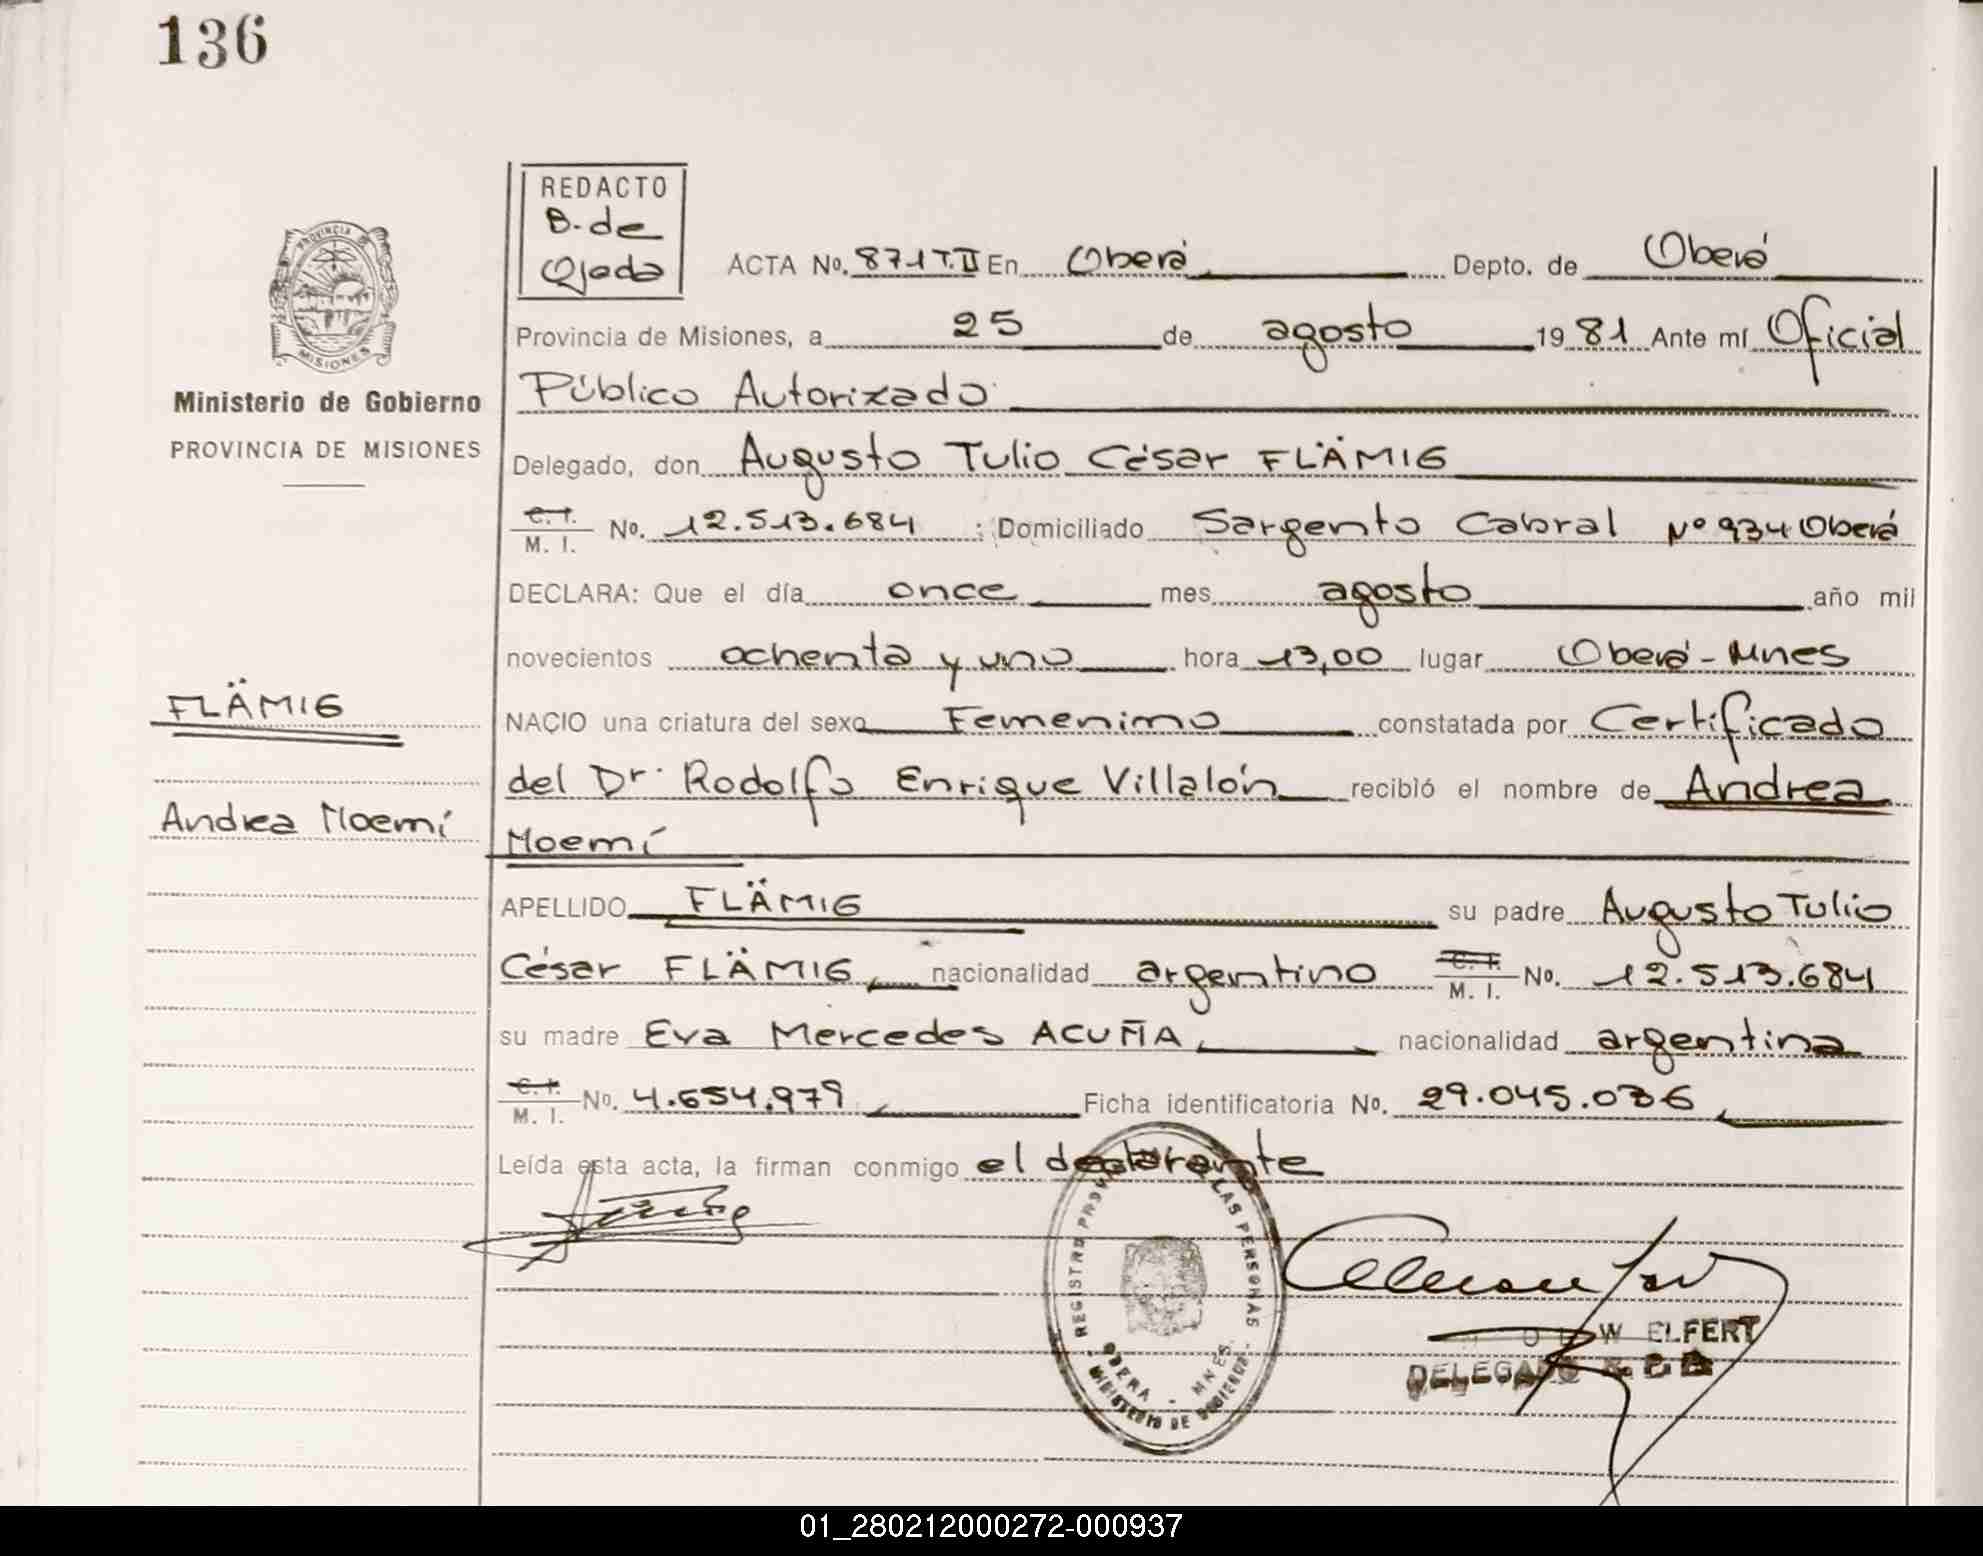 136
REDACTO
B. de
Ojeda
ACTA No. 871 T.II En Oberá Depto. de Oberá
Provincia de Misiones, a 25 de agosto 1981 Ante mí Oficial
Público Autorizado
Delegado, don Augusto Tulio César FLÄMIG
C. I. M. I. No. 12.513.684 ; Domiciliado Sargento Cabral Nº 934 Oberá
DECLARA: Que el día once mes agosto año mil
novecientos ochenta y uno hora 13,00 lugar Oberá - Mnes
NACIO una criatura del sexo Femenino constatada por Certificado
del Dr. Rodolfo Enrique Villalón recibió el nombre de Andrea
Noemí
APELLIDO FLÄMIG su padre Augusto Tulio
César FLÄMIG, nacionalidad argentino C. I. M. I. No. 12.513.684
su madre Eva Mercedes ACUÑA, nacionalidad argentina
C. I. M. I. No. 4.654.979, Ficha identificatoria No. 29.045.036,
Leída esta acta, la firman conmigo el declarante
PROVINCIA DE
MISIONES
Ministerio de Gobierno
PROVINCIA DE MISIONES
FLÄMIG
Andrea Noemí
REGISTRO PROV. LAS PERSONAS
OBERA - MNES.
MINISTERIO DE GOBIERNO
W ELFERT
DELEGADO
01_280212000272-000937